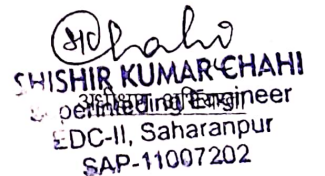 SHISHIR KUMAR CHAHI
अधीक्षण अभियन्ता
Superintending Engineer
EDC-II, Saharanpur
SAP-11007202